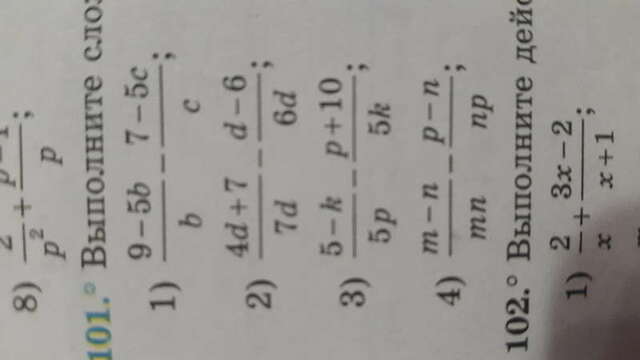 8) 2/p² + (p − 1)/p;
101.° Выполните
1) (9 − 5b)/b − (7 − 5c)/c;
2) (4d + 7)/7d − (d − 6)/6d;
3) (5 − k)/5p − (p + 10)/5k;
4) (m − n)/mn − (p − n)/np;
102.° Выполните
1) 2/x + (3x − 2)/(x + 1);